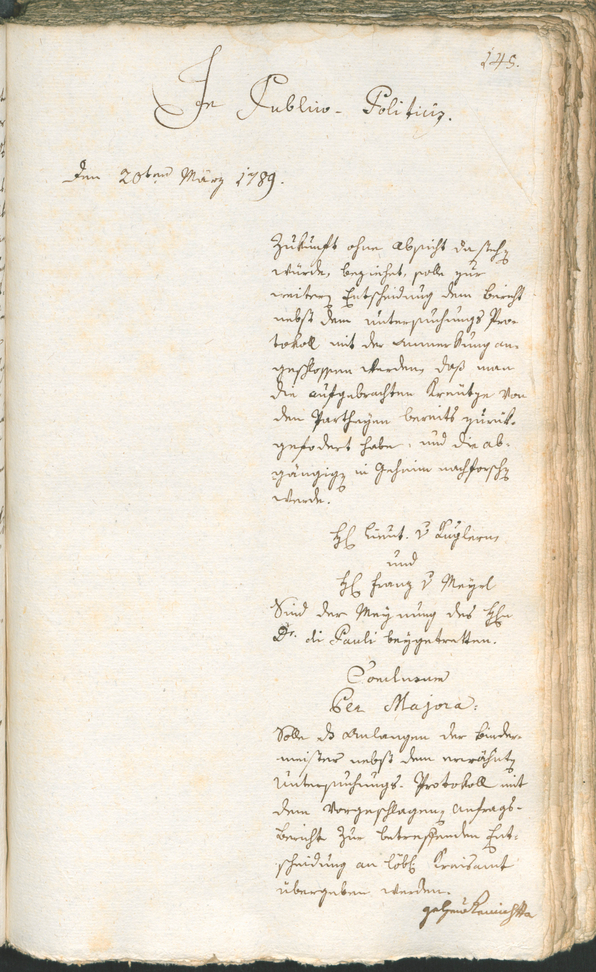 145.
In Publico-Politicis.
Den 20ten März 1789.
Zukunft ohne Absicht da stehe
würde, beziehet, solle zur
weitern Entscheidung dem Bericht
nebst dem untersuchungs Pro-
tokoll mit der Anmerkung an-
geschlossen werden, daß man
die aufgebrachten Kreütze von
den Partheyen bereits zurük-
gefodert habe, und die ab-
gängige in Geheim nachforsche
werde.
H Lieut. v Kuglern
und
H Franz v Mayrl
Sind der Meynung des Hn
Dr. di Pauli beygetretten.
Conclusum
Per Majora:
Solle das Anlangen der Binder-
meister nebst dem erwähnten
Untersuchungs-Protokoll mit
dem vorgeschlagenen Anfrags-
Bericht zur betreffenden Ent-
scheidung an löbl Kreisamt
übergeben werden.